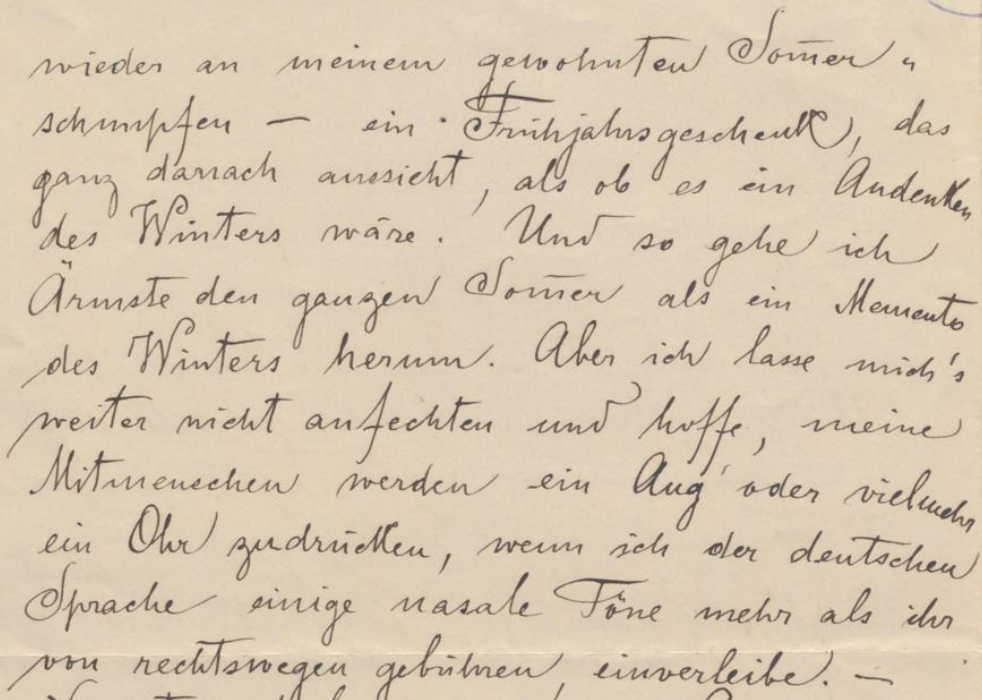 wieder an meinem gewohnten Som̅er„
schnupfen — ein Frühjahrsgeschenk, das
ganz darnach aussieht, als ob es ein Andenken
des Winters wäre. Und so gehe ich
Ärmste den ganzen Som̅er als ein Memento
des Winters herum. Aber ich lasse mich's
weiter nicht anfechten und hoffe, meine
Mitmenschen werden ein Aug' oder vielmehr
ein Ohr zudrücken, wenn ich der deutschen
Sprache einige nasale Töne mehr als ihr
von rechtswegen gebühren, einverleibe. —